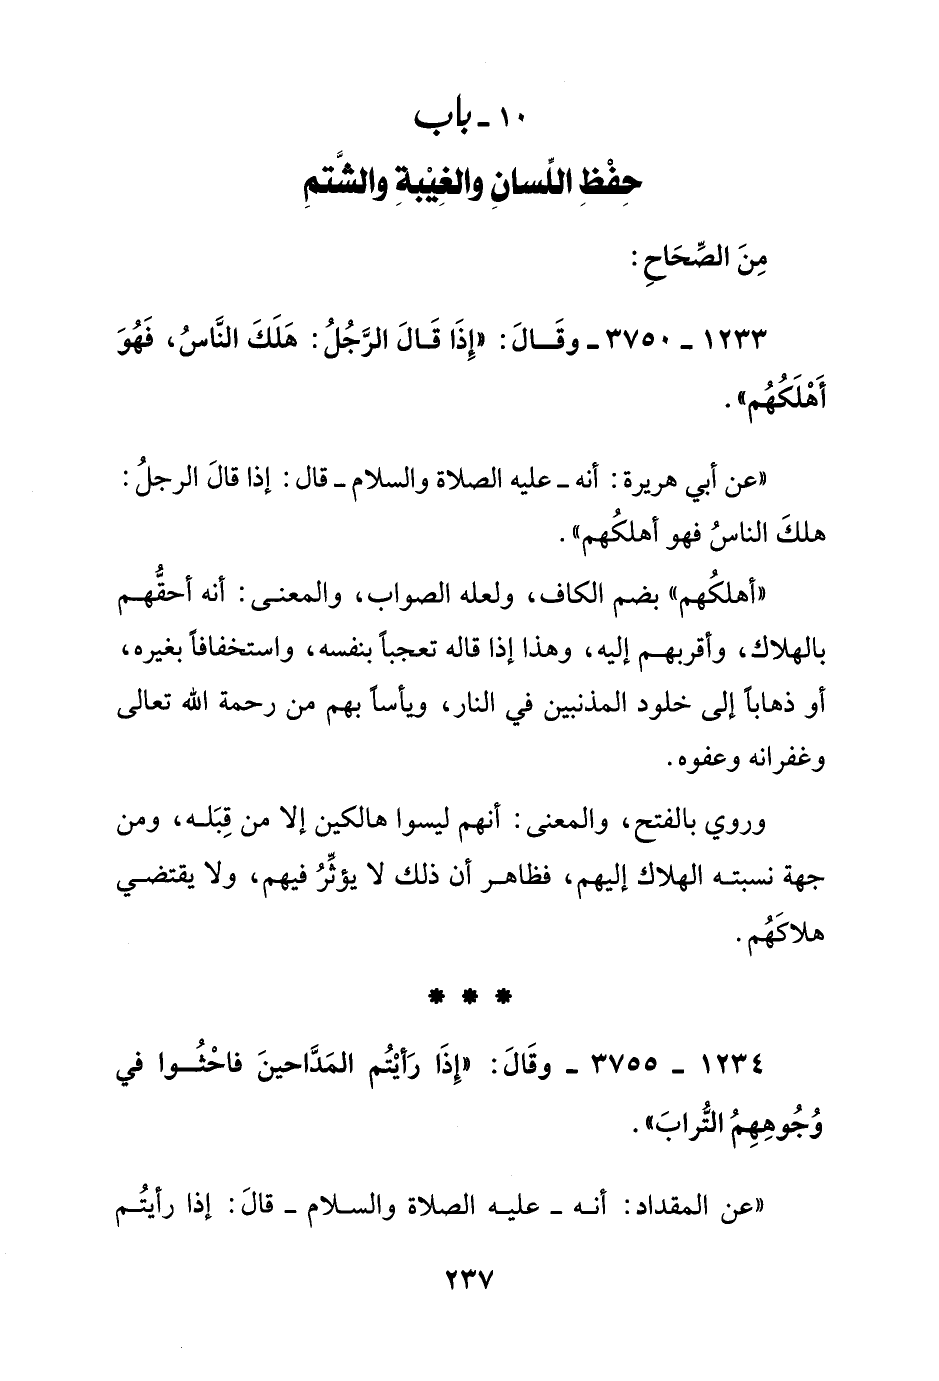 ١٠ ـ باب
حِفْظِ اللِّسانِ والغِيْبةِ والشَّتمِ
مِنَ الصِّحَاحِ:
١٢٣٣ ـ ٣٧٥٠ ـ وقَـالَ: «إِذَا قَـالَ الرَّجُلُ: هَلَكَ النَّاسُ، فَهُوَ
أَهْلَكُهُم».
«عن أبي هريرة: أنه ـ عليه الصلاة والسلام ـ قال: إذا قالَ الرجلُ:
هلكَ الناسُ فهو أهلكُهم».
«أهلكُهم» بضم الكاف، ولعله الصواب، والمعنـى: أنه أحقُّهـم
بالهلاك، وأقربهـم إليه، وهذا إذا قاله تعجباً بنفسه، واستخفافاً بغيره،
أو ذهاباً إلى خلود المذنبين في النار، ويأساً بهم من رحمة الله تعالى
وغفرانه وعفوه.
وروي بالفتح، والمعنى: أنهم ليسوا هالكين إلا من قِبَلـه، ومن
جهة نسبتـه الهلاك إليهم، فظاهـر أن ذلك لا يؤثِّرُ فيهم، ولا يقتضـي
هلاكَهُم.
* * *
١٢٣٤ ـ ٣٧٥٥ ـ وقَالَ: «إِذَا رَأَيْتُم المَدَّاحينَ فاحْثُـوا في
وُجُوهِهِمُ التُّرابَ».
«عن المقداد: أنـه ـ عليـه الصلاة والسـلام ـ قالَ: إذا رأيتُـم
٢٣٧